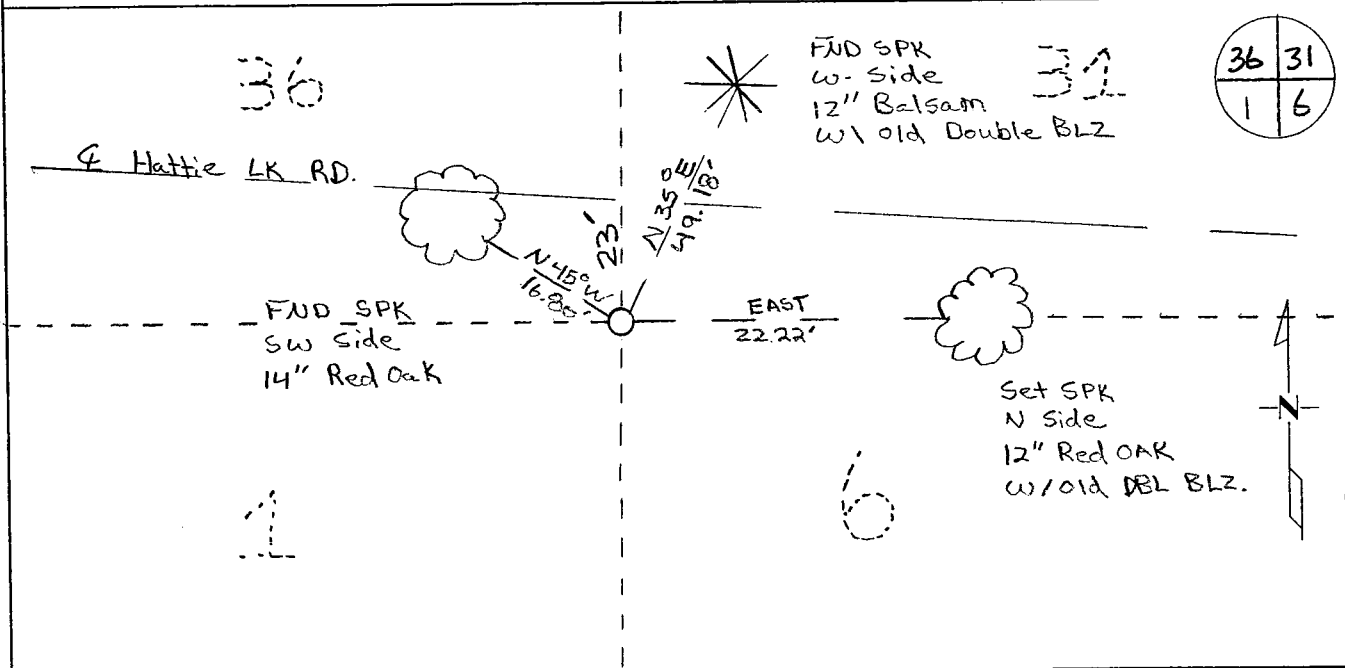 36
FND SPK
W- Side
12" Balsam
W\ old Double BLZ
31
36 31
1 6
℄ Hattie LK RD.
23'
N 35° E
49.18'
N 45° W
16.80'
EAST
22.22'
FND SPK
SW Side
14" Red Oak
Set SPK
N Side
12" Red OAK
W/old DBL BLZ.
N
1
6